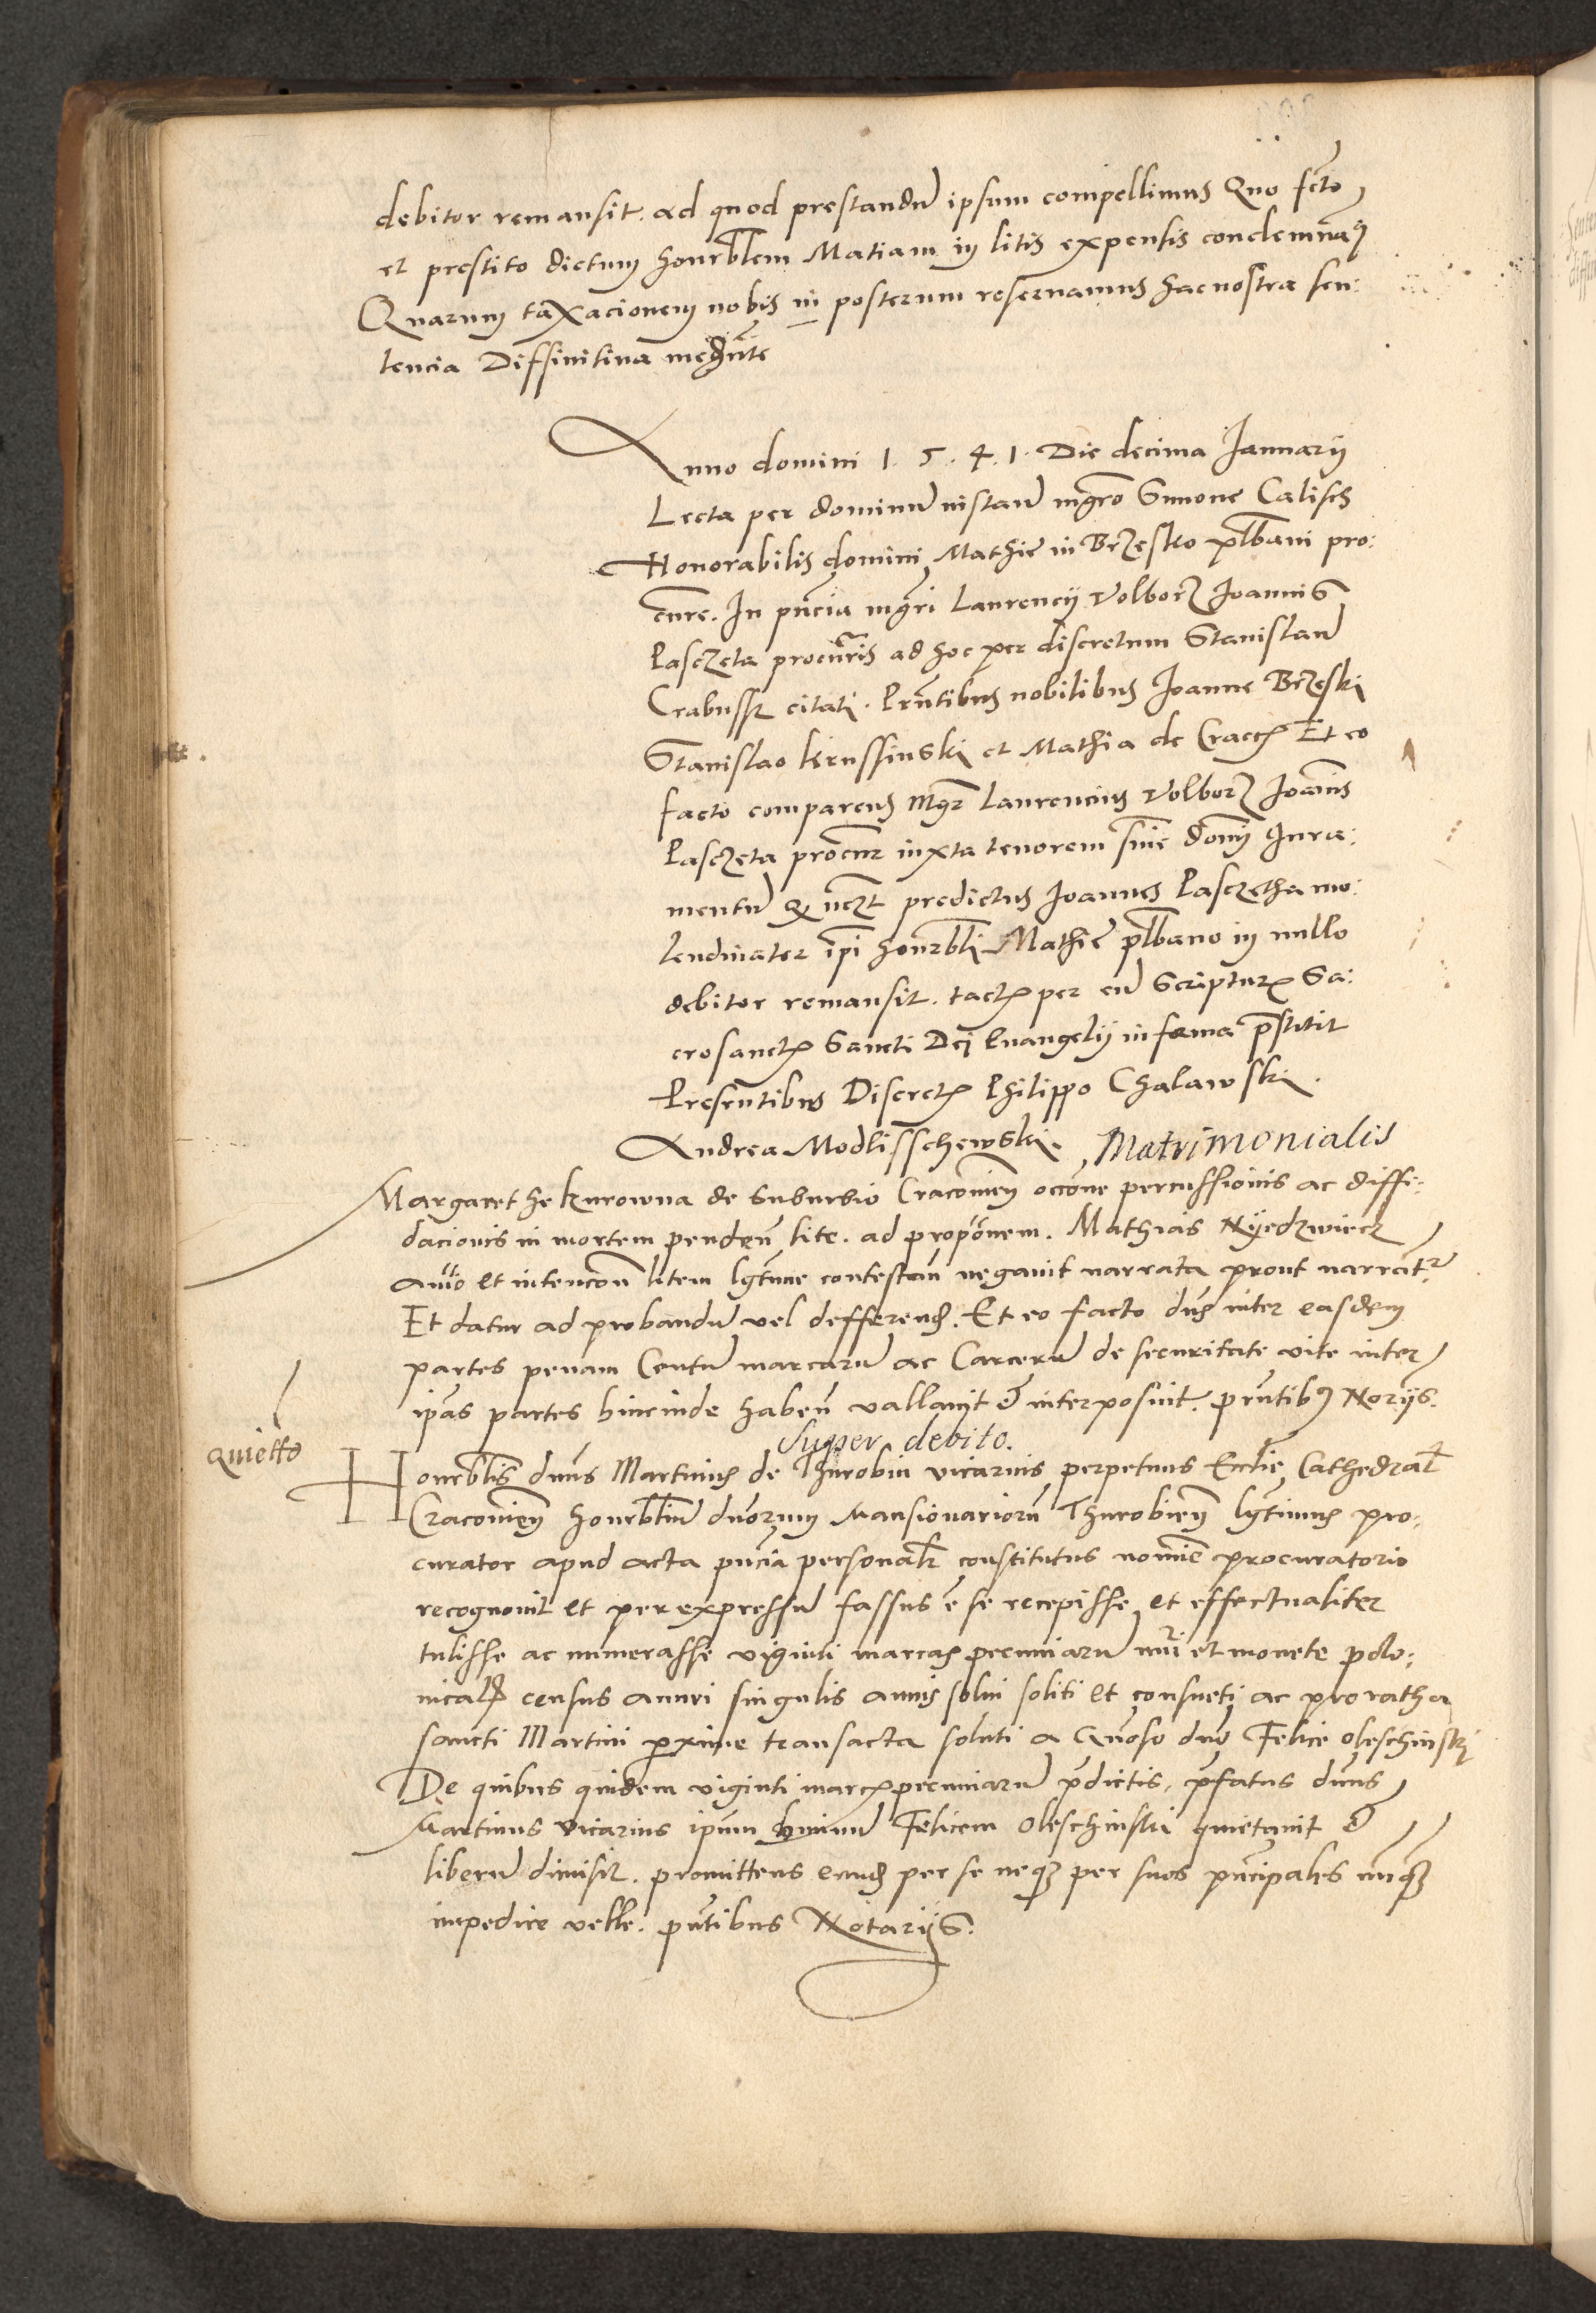 debitor remansit. ad quod prestandũ ipsum compellimus Quo fcto
et prestito dictum honrblem Matiam in litis expensis condemnaꝫ
Quarum taxacionem nobis in posterum reseruamus hac nostra sen:
tencia Diffinitiua medñte
Anno domini 1.5.4.1. Die decima Januarij
Lecta per dominũ instanͭ mgro Simone Calisch
Honorabilis domini Mathie in Brzesko plbani pro:
cure. In pñcia mgri Laurencij Volborz Joannis
Pasczeta procuris ad hoc per discretum Stanislaũ
Crabussk citati. Prñtibus nobilibus Joanne Brzeski
Stanislao Krussinski et Mathia de Cracꝭ Et eo
facto comparens Mgr Laurencius Volborz Joannis
Pasczeta procur iuxta tenorem sñie domi Jura:
mentũ ꝙ uczt predictus Joannes Pasczetha mo:
lendinator ipi honrbli Mathie plbano in nullo
debitor remansit. tactꝭ per eũ Scripturꝭ Sa:
crosanctꝭ Sancti Dei Euangelij in forma prstitit
Presentibus Discretꝭ Philippo Chalawski.
Andrea Modlisschewski. Matrimonialis
Margarethe Kurowna de Suburbio Cracouien occone percussionis ac diffi:
dacionis in mortem pendeñ lite. ad proponem. Mathias Nyedzwiecz
animo et intencoñ litem lgtime contestañ negauit narrata prout narrantʳ
Et datur ad probandũ vel defferend. Et eo facto dñs inter easdem
partes penam Centũ marcarũ ac Carcerũ de securitate vite inter
ipas partes hincinde habeñ vallauit et interposuit. prñtibꝫ Norijs.
Super debito.
quietto
Honrblis dnus Martinus de Thurobin vicarius perpetuus Ecclie Cathedralꝭ
Cracouien honrblium dnorum Mansionariorũ Thurobien lgtimus pro:
curator apud acta pñcia personalr constitutus nomine procuratorio
recognouit et per expressũ fassus ẽ se recepisse et effectualiter
tulisse ac numerasse viginti marcas pecuniarũ nui et monete polo:
nicalꝭ census annui singulis annis solui soliti et consueti ac pro ratha
sancti Martini proxime transacta soluti a Gnoso dno Felice Oleschinski
De quibus quidem viginti marcꝭ pecuniarũ pdictis, pfatus dnus
Martinus vicarius ipum dnum Felicem Oleschinski quietauit et
liberũ dimisit. promittens eund per se neqꝫ per suos pñcipales unqꝫ
impedire velle. pñtibus Notarijs.